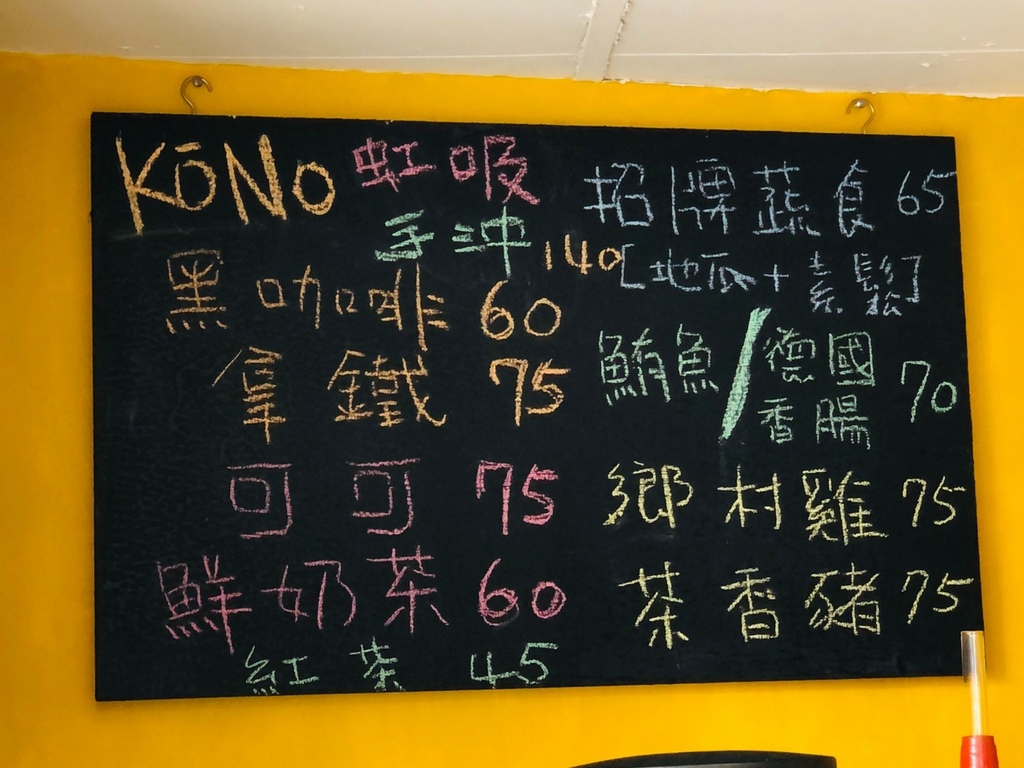 KōNo 虹吸
手沖 140
黑咖啡 60
拿鐵 75
可可 75
鮮奶茶 60
紅茶 45
招牌蔬食 65
[地瓜+素鬆]
鮪魚/德國香腸 70
鄉村雞 75
茶香豬 75